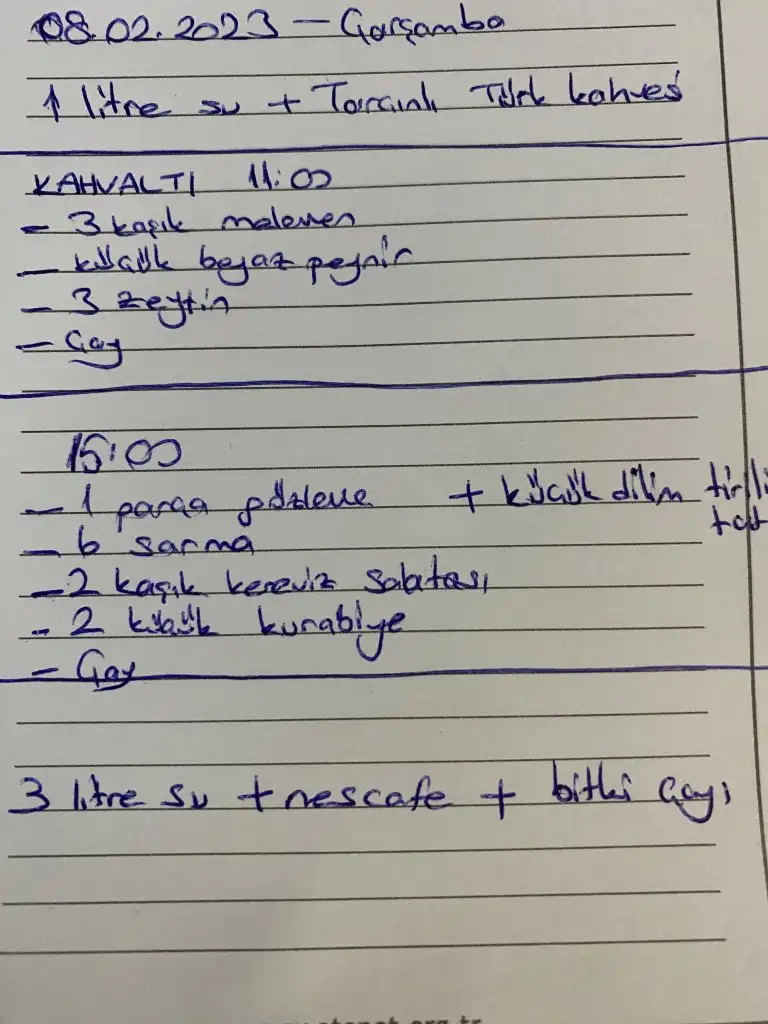 08.02.2023 - Çarşamba
1 litre su + Tarçınlı Türk kahvesi
KAHVALTI 11:00
- 3 kaşık melemen
- küçük beyaz peynir
- 3 zeytin
- Çay
15:00
- 1 parça gözleme + küçük dilim tirili
tat
- 6 sarma
- 2 kaşık kereviz salatası
- 2 küçük kurabiye
- Çay
3 litre su + nescafe + bitki çayı
.org.tr